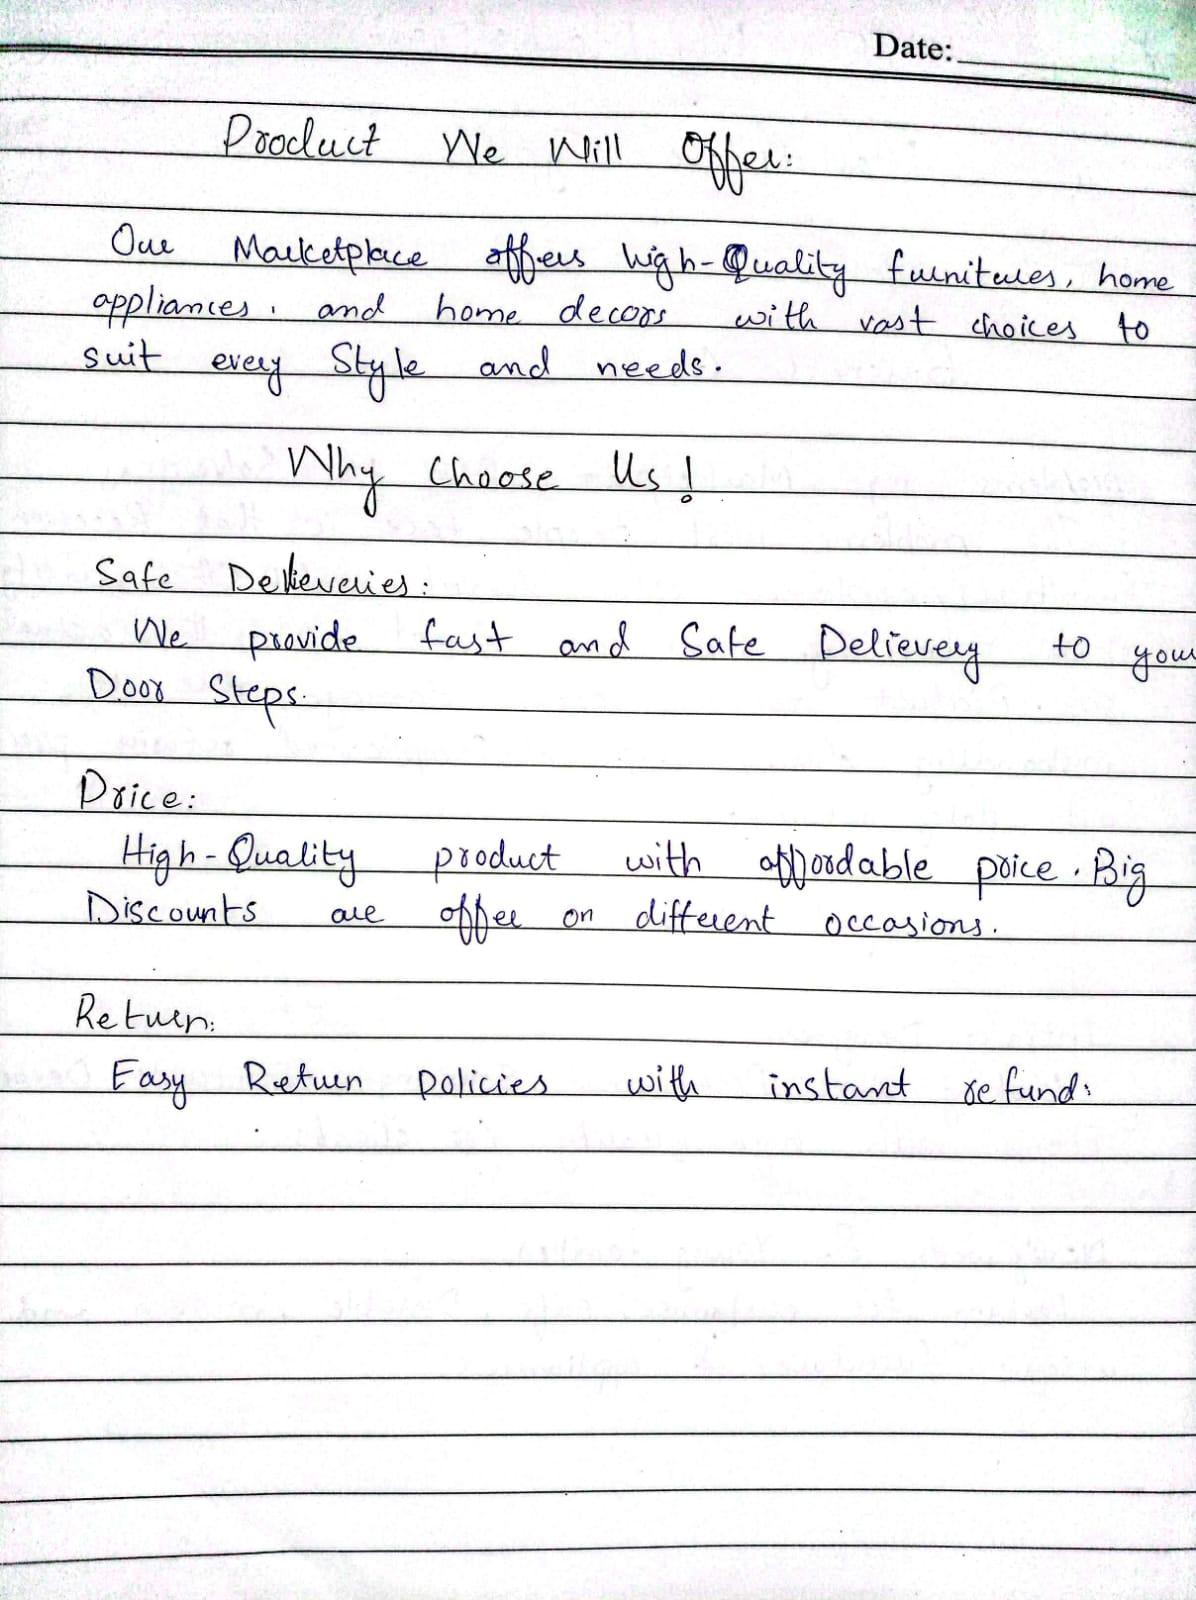 Date:
Product We Will Offer:
Our Marketplace offers high-Quality furnitures, home
appliances, and home decors with vast choices to
suit every Style and needs.
Why Choose Us!
Safe Delieveries:
We provide fast and Safe Delievery to your
Door Steps.
Price:
High-Quality product with affordable price. Big
Discounts are offer on different occasions.
Return:
Easy Return policies with instant refund: